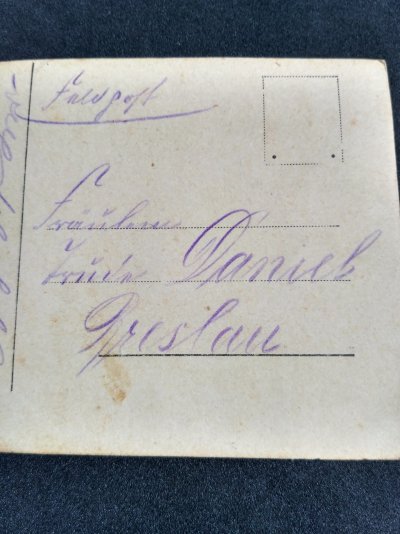 Feldpost
Fräulein
Trude Daniel
Breslau